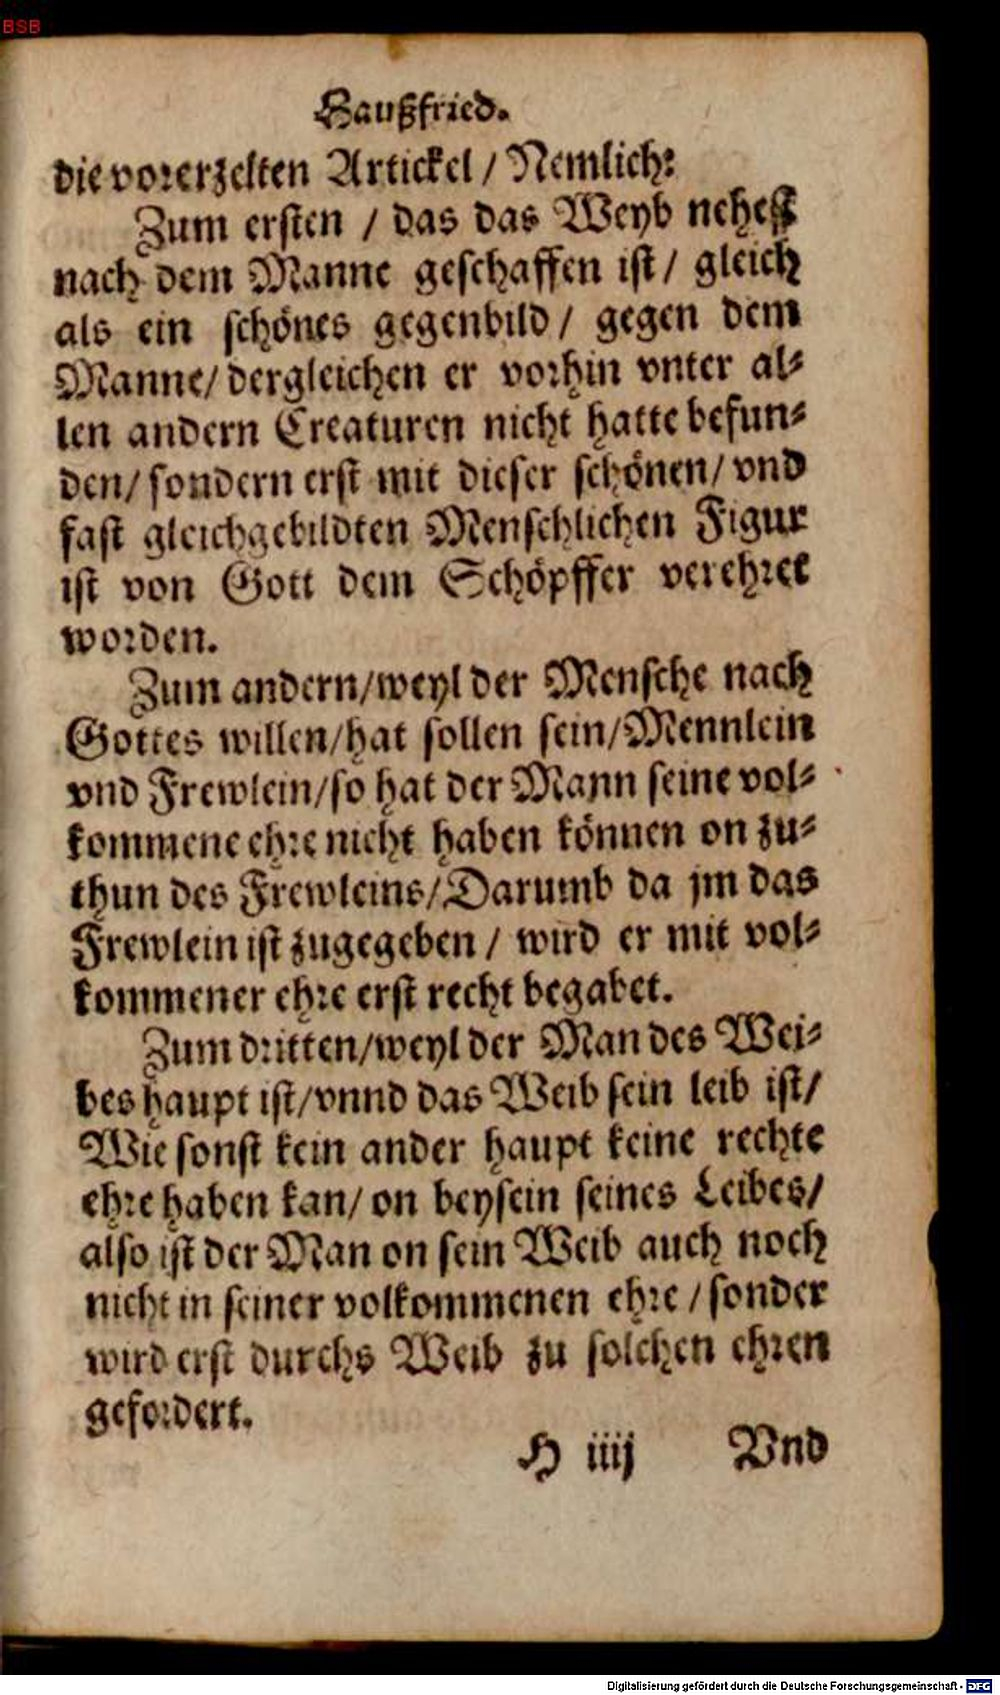 BSB
Haußfried.
die vorerzelten Artickel / Nemlich:
Zum ersten / das das Weyb nehest
nach dem Manne geschaffen ist / gleich
als ein schönes gegenbild / gegen dem
Manne / dergleichen er vorhin vnter al⸗
len andern Creaturen nicht hatte befun⸗
den / sondern erst mit dieser schönen / vnd
fast gleichgebildten Menschlichen Figur
ist von Gott dem Schöpffer verehret
worden.
Zum andern / weyl der Mensche nach
Gottes willen / hat sollen sein / Mennlein
vnd Frewlein / so hat der Mann seine vol⸗
kommene ehre nicht haben können on zu⸗
thun des Frewleins / Darumb da jm das
Frewlein ist zugegeben / wird er mit vol⸗
kommener ehre erst recht begabet.
Zum dritten / weyl der Man des Wei⸗
bes haupt ist / vnnd das Weib sein leib ist /
Wie sonst kein ander haupt keine rechte
ehre haben kan / on beysein seines Leibes /
also ist der Man on sein Weib auch noch
nicht in seiner volkommenen ehre / sonder
wird erst durchs Weib zu solchen ehren
gefordert.
H iiij Vnd
Digitalisierung gefördert durch die Deutsche Forschungsgemeinschaft - DFG